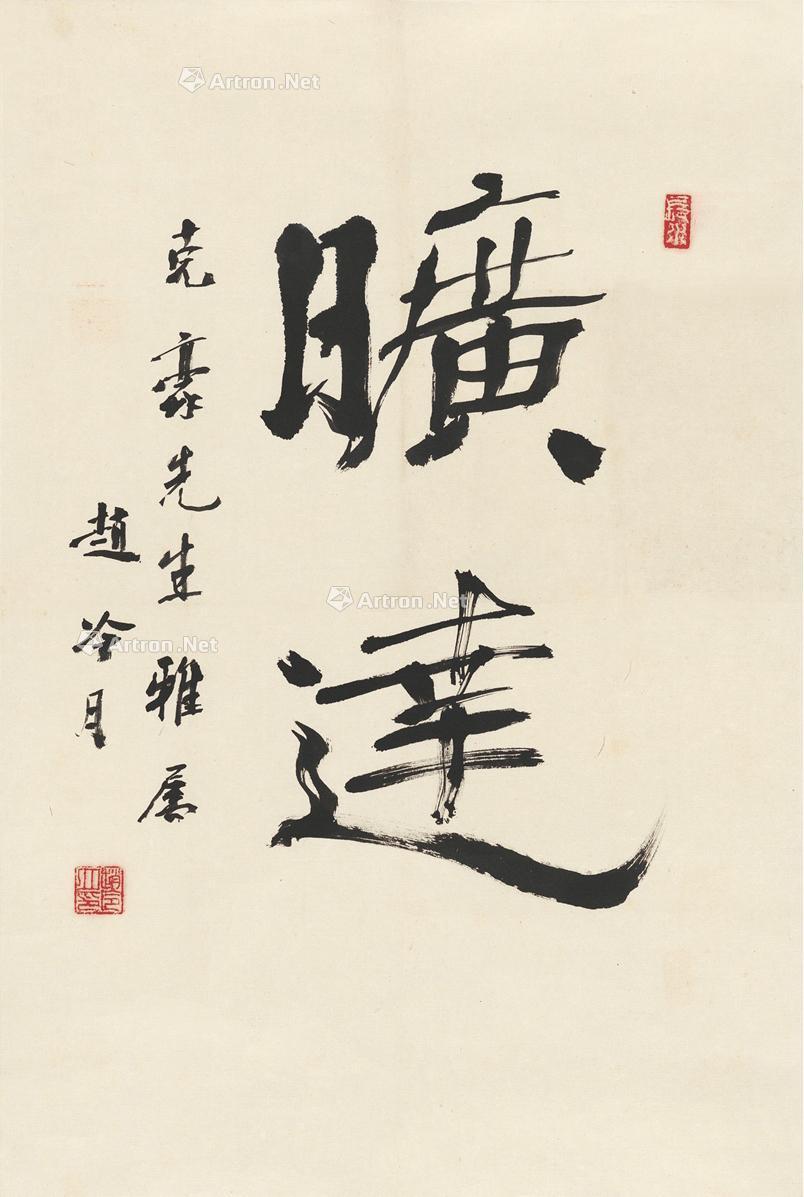 曠達
克豪先生雅屬
趙冷月
Artron.Net
Artron.Net
Artron.Net